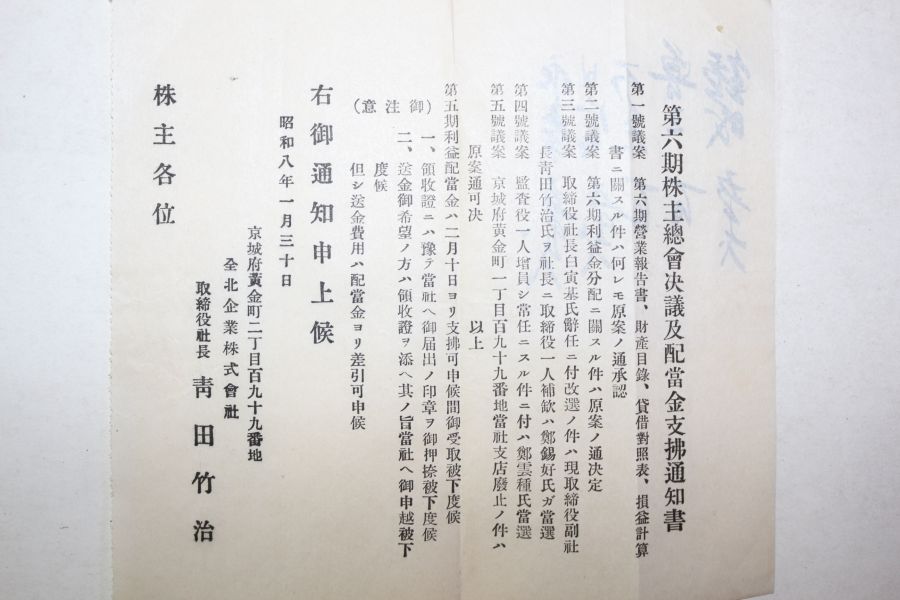 第六期株主總會决議及配當金支拂通知書
第一號議案　第六期營業報告書、財產目錄、貸借對照表、損益計算
書ニ關スル件ハ何レモ原案ノ通承認
第二號議案　第六期利益金分配ニ關スル件ハ原案ノ通決定
第三號議案　取締役社長白寅基氏辭任ニ付改選ノ件ハ現取締役副社
長靑田竹治氏ヲ社長ニ取締役一人補欽ハ鄭錫好氏ガ當選
第四號議案　監査役一人增員シ常任ニスル件ニ付ハ鄭雲種氏當選
第五號議案　京城府黃金町一丁目百九十九番地當社支店廢止ノ件ハ
原案通可決
以上
第五期利益配當金ハ二月十日ヨリ支拂可申候間御受取被下度候
（御注意）
一、領收證ニハ豫テ當社ヘ御届出ノ印章ヲ御押捺被下度候
二、送金御希望ノ方ハ領收證ヲ添ヘ其ノ旨當社ヘ御申越被下
度候
但シ送金費用ハ配當金ヨリ差引可申候
右御通知申上候
昭和八年一月三十日
京城府黃金町二丁目百九十九番地
全北企業株式會社
取締役社長　靑田竹治
株主各位